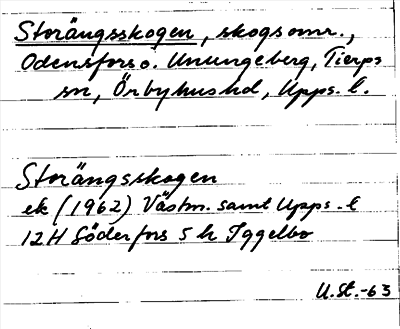 Storängsskogen, skogsomr.,
Odensfors o. Unungeberg, Tierps
sn, Örbyhus hd, Upps. l.
Storängsskogen
ek (1962) Västm. samt Upps. l
12H Söderfors 5 h Iggelbo
U.St.-63